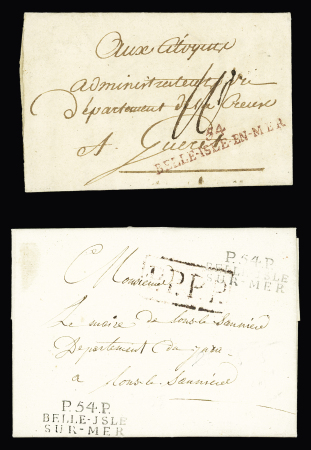 Aux Citoyens
administrateurs du
Département de la Creuse
A Gueret
54
BELLE-ISLE-EN-MER
P.54.P.
BELLE-ISLE
SUR-MER
P.P.P.P.
Monsieur
Le maire de Lons-le-Saunier
Département du Jura
a Lons-le-Saunier
P.54.P.
BELLE-ISLE
SUR-MER